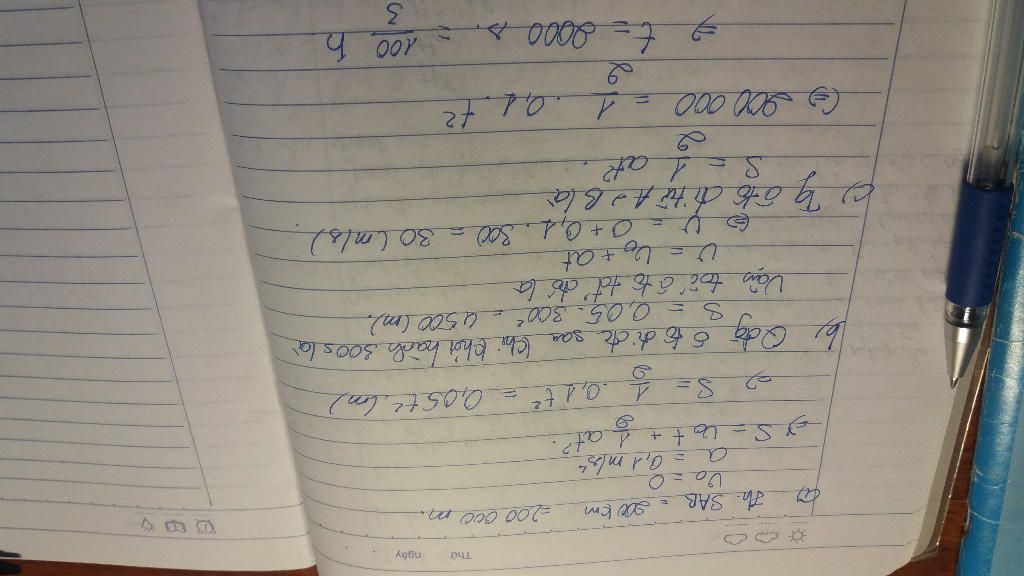 Thứ ngày
a) Th. SAB = 200 km = 200 000 m.
v₀ = 0
a = 0,1 m/s²
=> S = v₀ t + 1/2 at².
=> S = 1/2 . 0,1 t² = 0,05 t². (m)
b) Qđg ô tô đi đc sau khi khởi hành 300s là
S = 0,05 . 300² = 4500 (m).
Vận tốc ô tô tđ đó là
v = v₀ + at
(=) v = 0 + 0,1 . 300 = 30 (m/s).
c) Tg ô tô đi từ A -> B là
S = 1/2 at².
(=) 200 000 = 1/2 . 0,1 . t²
=> t = 2000 s = 100/3 h